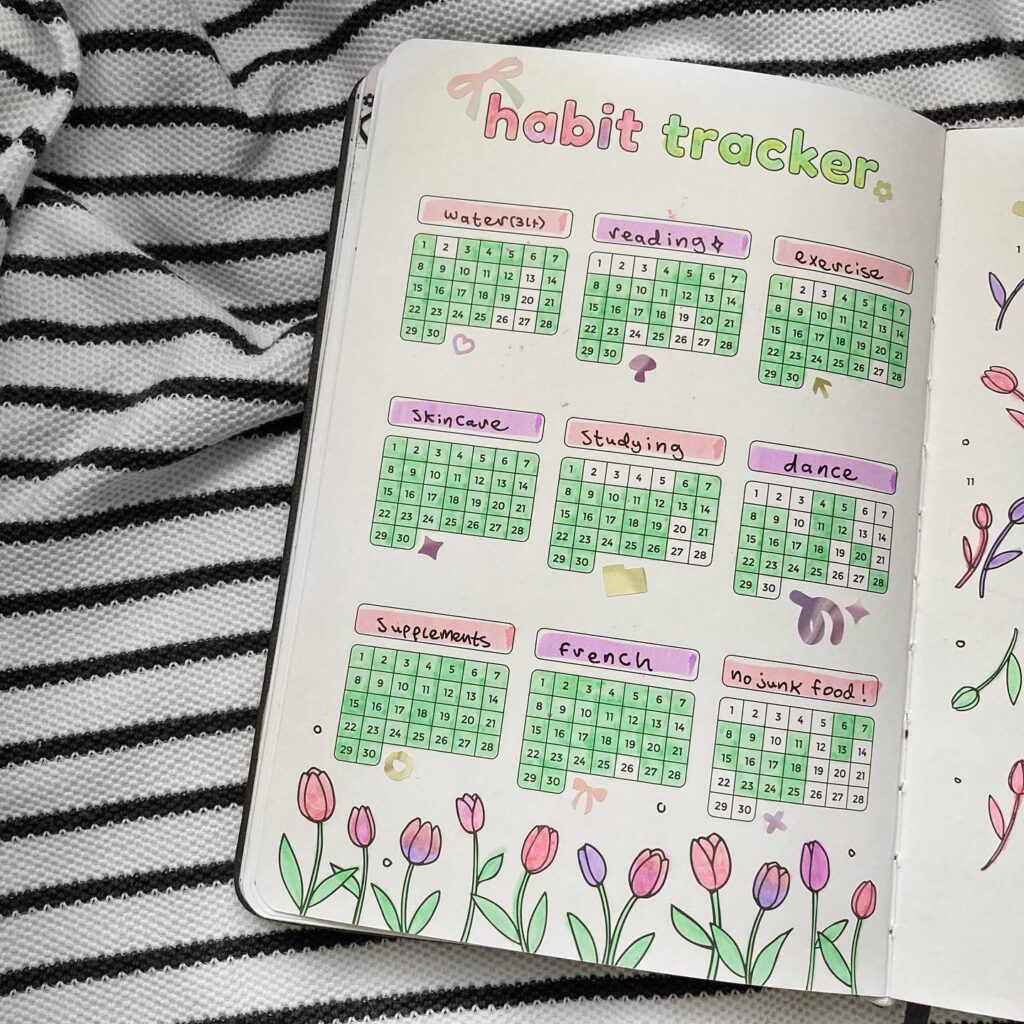 habit tracker
water(3lt) reading exercise
1 2 3 4 5 6 7
8 9 10 11 12 13 14
15 16 17 18 19 20 21
22 23 24 25 26 27 28
29 30
1 2 3 4 5 6 7
8 9 10 11 12 13 14
15 16 17 18 19 20 21
22 23 24 25 26 27 28
29 30
1 2 3 4 5 6 7
8 9 10 11 12 13 14
15 16 17 18 19 20 21
22 23 24 25 26 27 28
29 30
Skincare Studying dance
1 2 3 4 5 6 7
8 9 10 11 12 13 14
15 16 17 18 19 20 21
22 23 24 25 26 27 28
29 30
1 2 3 4 5 6 7
8 9 10 11 12 13 14
15 16 17 18 19 20 21
22 23 24 25 26 27 28
29 30
1 2 3 4 5 6 7
8 9 10 11 12 13 14
15 16 17 18 19 20 21
22 23 24 25 26 27 28
29 30
Supplements french no junk food!
1 2 3 4 5 6 7
8 9 10 11 12 13 14
15 16 17 18 19 20 21
22 23 24 25 26 27 28
29 30
1 2 3 4 5 6 7
8 9 10 11 12 13 14
15 16 17 18 19 20 21
22 23 24 25 26 27 28
29 30
1 2 3 4 5 6 7
8 9 10 11 12 13 14
15 16 17 18 19 20 21
22 23 24 25 26 27 28
29 30
1
11